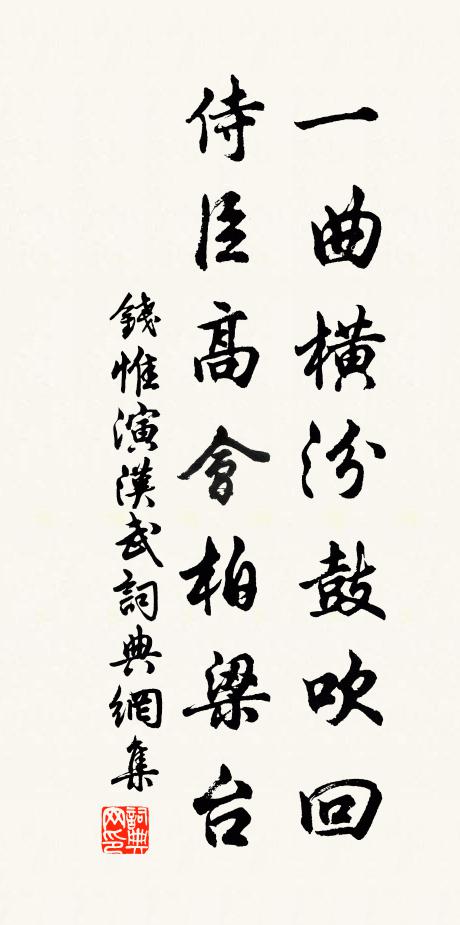 一曲橫汾鼓吹回
侍臣高會柏梁台
錢惟演漢武詞典網集
詞典網印